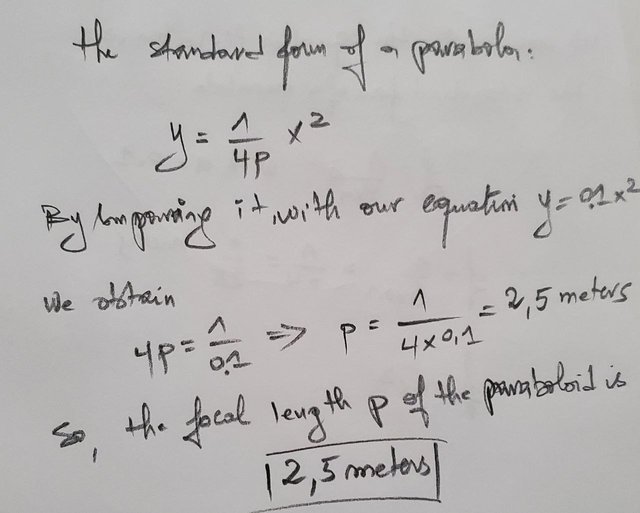 the standard form of a parabola:
y = 1/4p x²
By comparing it, with our equation y = 0.1x²
we obtain
4p = 1/0.1 => p = 1/4x0,1 = 2,5 meters
So, the focal length p of the paraboloid is
2,5 meters